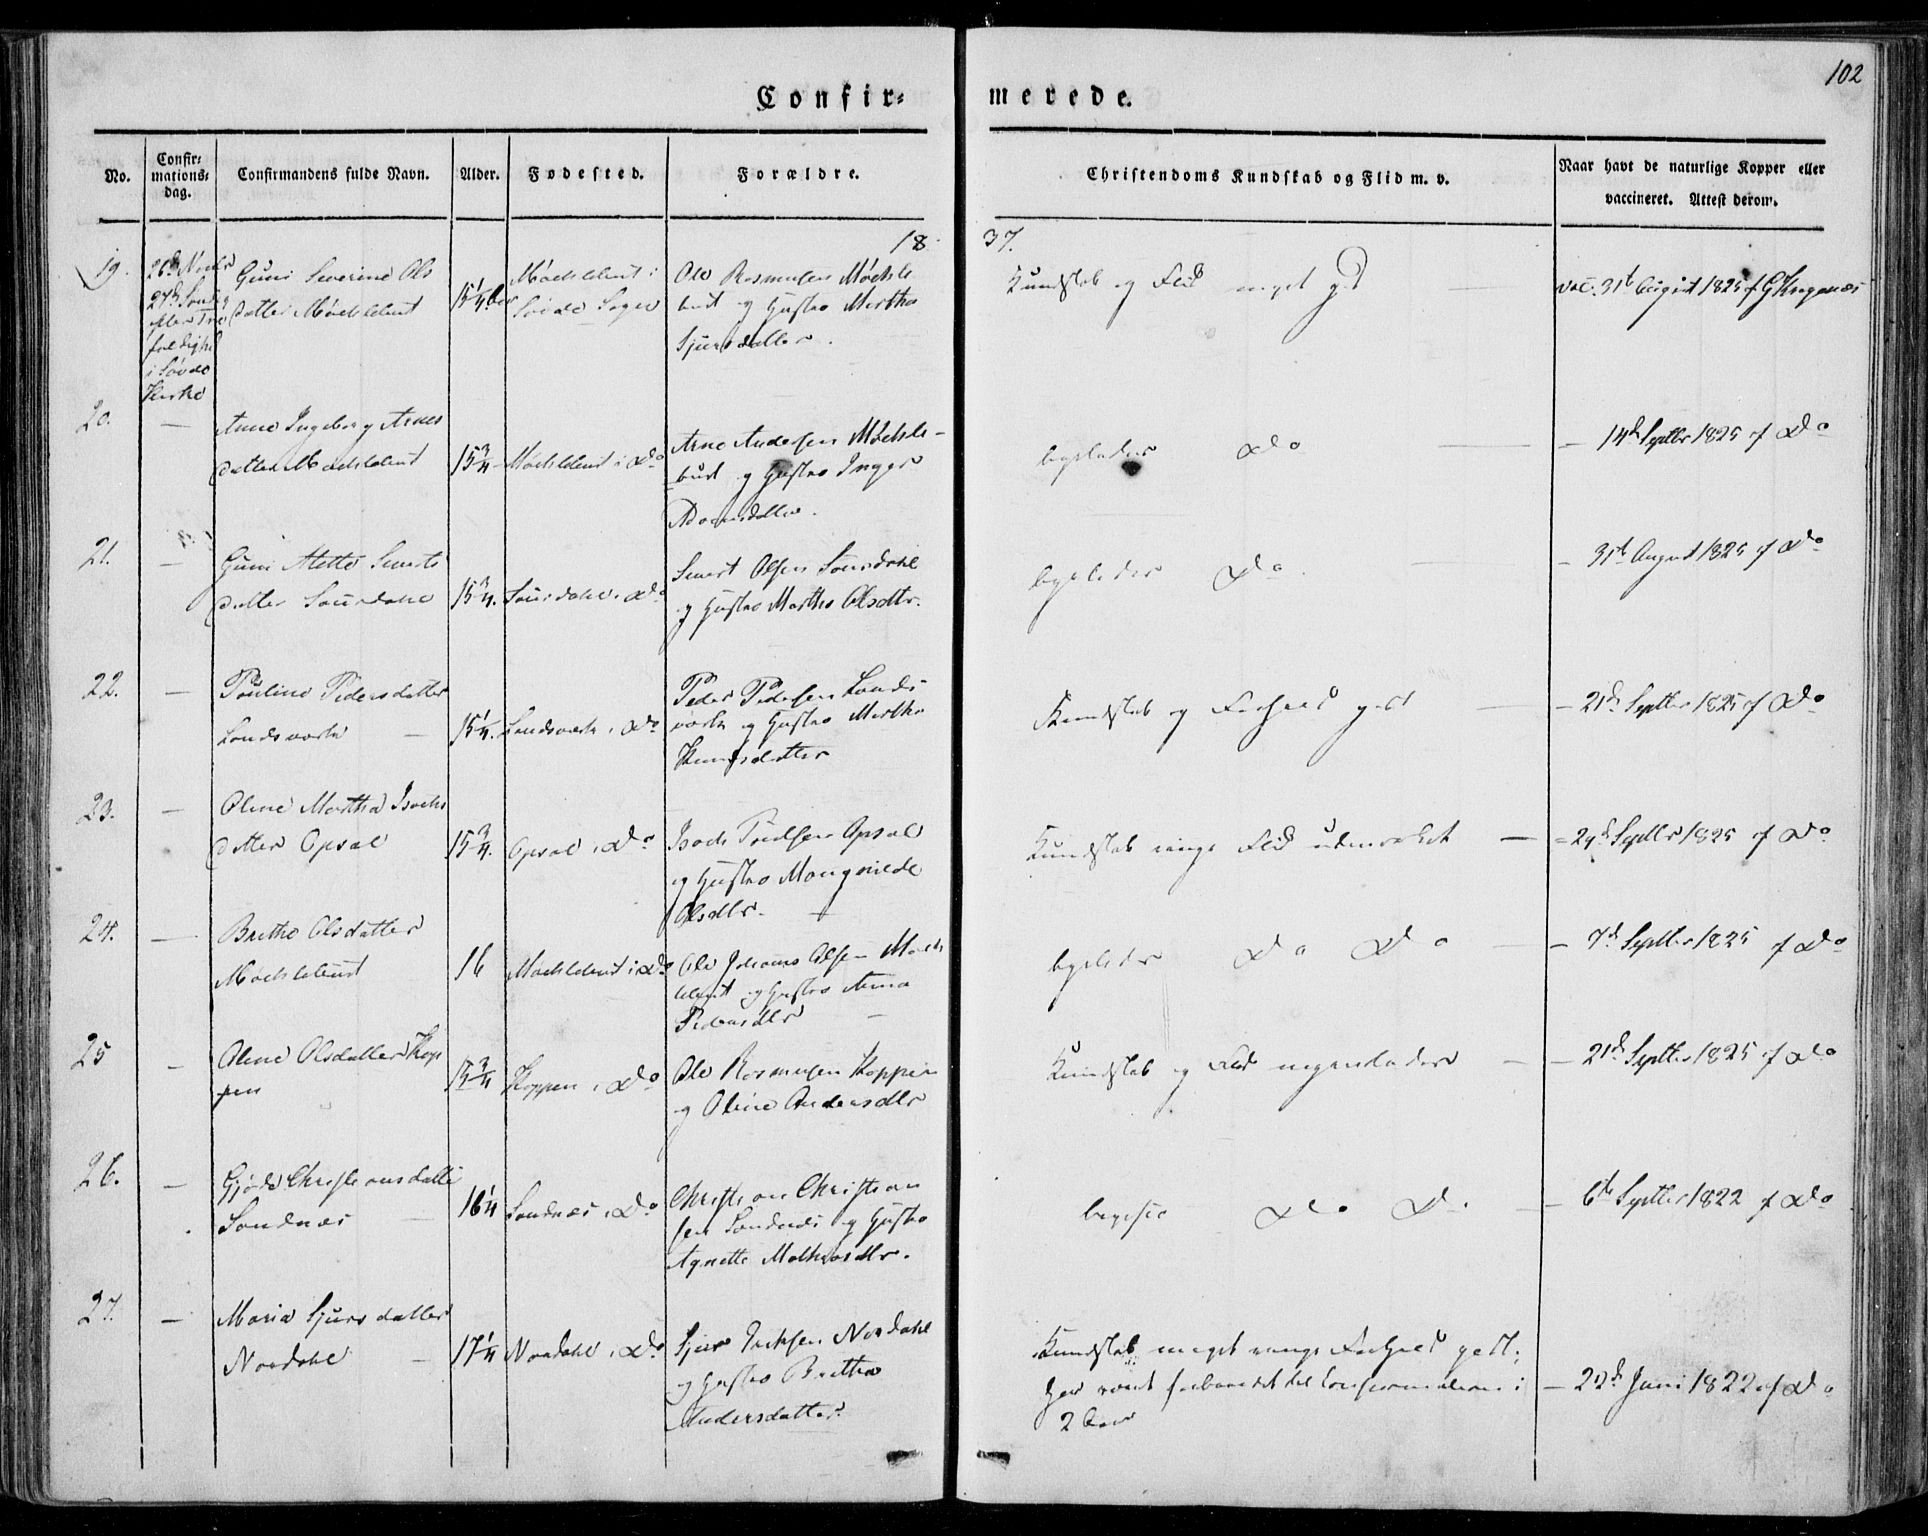 102
Confir= merede.
No.
Confir=
mations=
dag.
Confirmandens fulde Navn.
Alder.
Fødested.
Forældre.
Christendoms Kundskab og Flid m. v.
Naar havt de naturlige Kopper eller
vaccineret. Attest derom.
18 37.
19.
i Søvde
Kirke
Guni Severine Ols
datter Möchlebust
15 1/4
Möchlebust i
Søvde Sogn
Ole Rasmusen Möchle
bust og Hustro Martha
Sjursdatter.
Kundskab og Flid meget god
vac. 31te August 1825 af
20.
—
Anne Ingeborg Arnes
datter Möchlebust
15 3/4
Möchlebust i Do
Arne Andersen Möchle-
bust og Hustro Inger
ligeledes Do
— 14de Septbr 1825 af Do
21.
—
Guni Mette Siverts
datter
15 3/4.
i Do
Sivert Olsen
og Hustro Martha Olsdtr.
ligeledes Do
— 31te August 1825 af Do
22.
—
Pouline Pedersdatter
15 1/4.
i Do
Peder Pedersen
og Hustro Martha
Knudsdatter
Kundskab og Forhold godt
— 21de Septbr 1825 af Do
23.
—
Oline Martha Isachs
datter Opsal
15 3/4.
Opsal i Do
Isach Poulsen Opsal
og Hustro
Olsdtr.
Kundskab ringe Flid udmærket
Septbr 1825 af Do
24.
—
Brithe Olsdatter
Möchlebust
16
Möchlebust i Do
Ole Johannes Olsen Möch
lebust og Hustro Anna
Pedersdtr
ligeledes Do Do
— 7de Septbr 1825 af Do
25
—
Oline Olsdatter Kop
pen
15 3/4
Koppen i Do
Ole Rasmusen Koppen
og Oline Andersdtr
Kundskab og Flid
— 21de Septbr 1825 af Do
26.
—
Christiansdatter
Sandnæs
16 1/4
Sandnæs i Do
Christian Christian
sen Sandnæs og Hustro
Agnette Mathiasdtr.
Do Do
— 6te Septbr 1822 af Do
27.
—
Maria Sjursdatter
Nordahl
17 1/4
Nordahl i Do
Sjur Nordahl
og Hustro Brithe
Andersdatter.
Kundskab meget ringe Forhold godt;
har været forberedet til Confirmationen i
2 Aar
— 22de Juni 1822 af Do